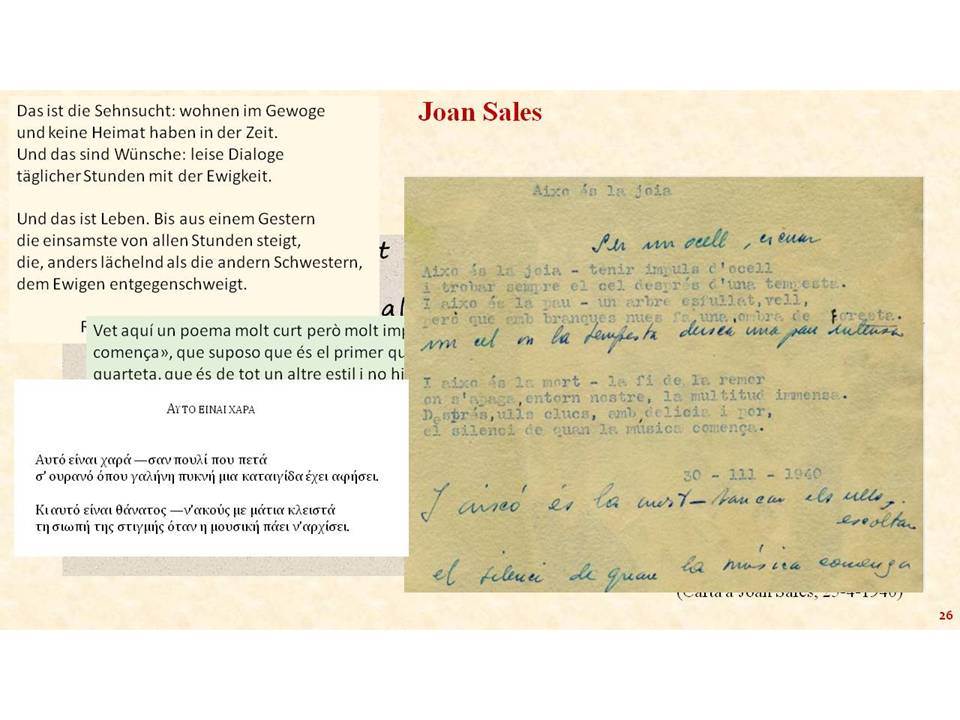 Das ist die Sehnsucht: wohnen im Gewoge
und keine Heimat haben in der Zeit.
Und das sind Wünsche: leise Dialoge
täglicher Stunden mit der Ewigkeit.
Und das ist Leben. Bis aus einem Gestern
die einsamste von allen Stunden steigt,
die, anders lächelnd als die andern Schwestern,
dem Ewigen entgegenschweigt.
Joan Sales
Vet aquí un poema molt curt però molt imp
comença», que suposo que és el primer qu
quarteta, que és de tot un altre estil i no hi
ΑΥΤΟ ΕΙΝΑΙ ΧΑΡΑ
Αυτό είναι χαρά —σαν πουλί που πετά
σ' ουρανό όπου γαλήνη πυκνή μια καταιγίδα έχει αφήσει.
Κι αυτό είναι θάνατος —ν'ακούς με μάτια κλειστά
τη σιωπή της στιγμής όταν η μουσική πάει ν'αρχίσει.
Aixo és la joia
Ser un ocell, creuar
Aixo és la joia - tenir impuls d'ocell
i trobar sempre el cel després d'una tempesta.
I aixo és la pau - un arbre esfullat, vell,
però que amb branques nues fa una ombra de foresta.
un cel on la tempesta deixa una pau intensa
I aixo és la mort - la fi de la remor
on s'apaga, entorn nostre, la multitud immensa.
Després, ulls clucs, amb delicia i por,
el silenci de quan la música comença.
30 - 111 - 1940
I aixó és la mort - tancar els ulls,
escoltar
el silenci de quan la música comença
(Carta a Joan Sales, 25-4-1940)
26